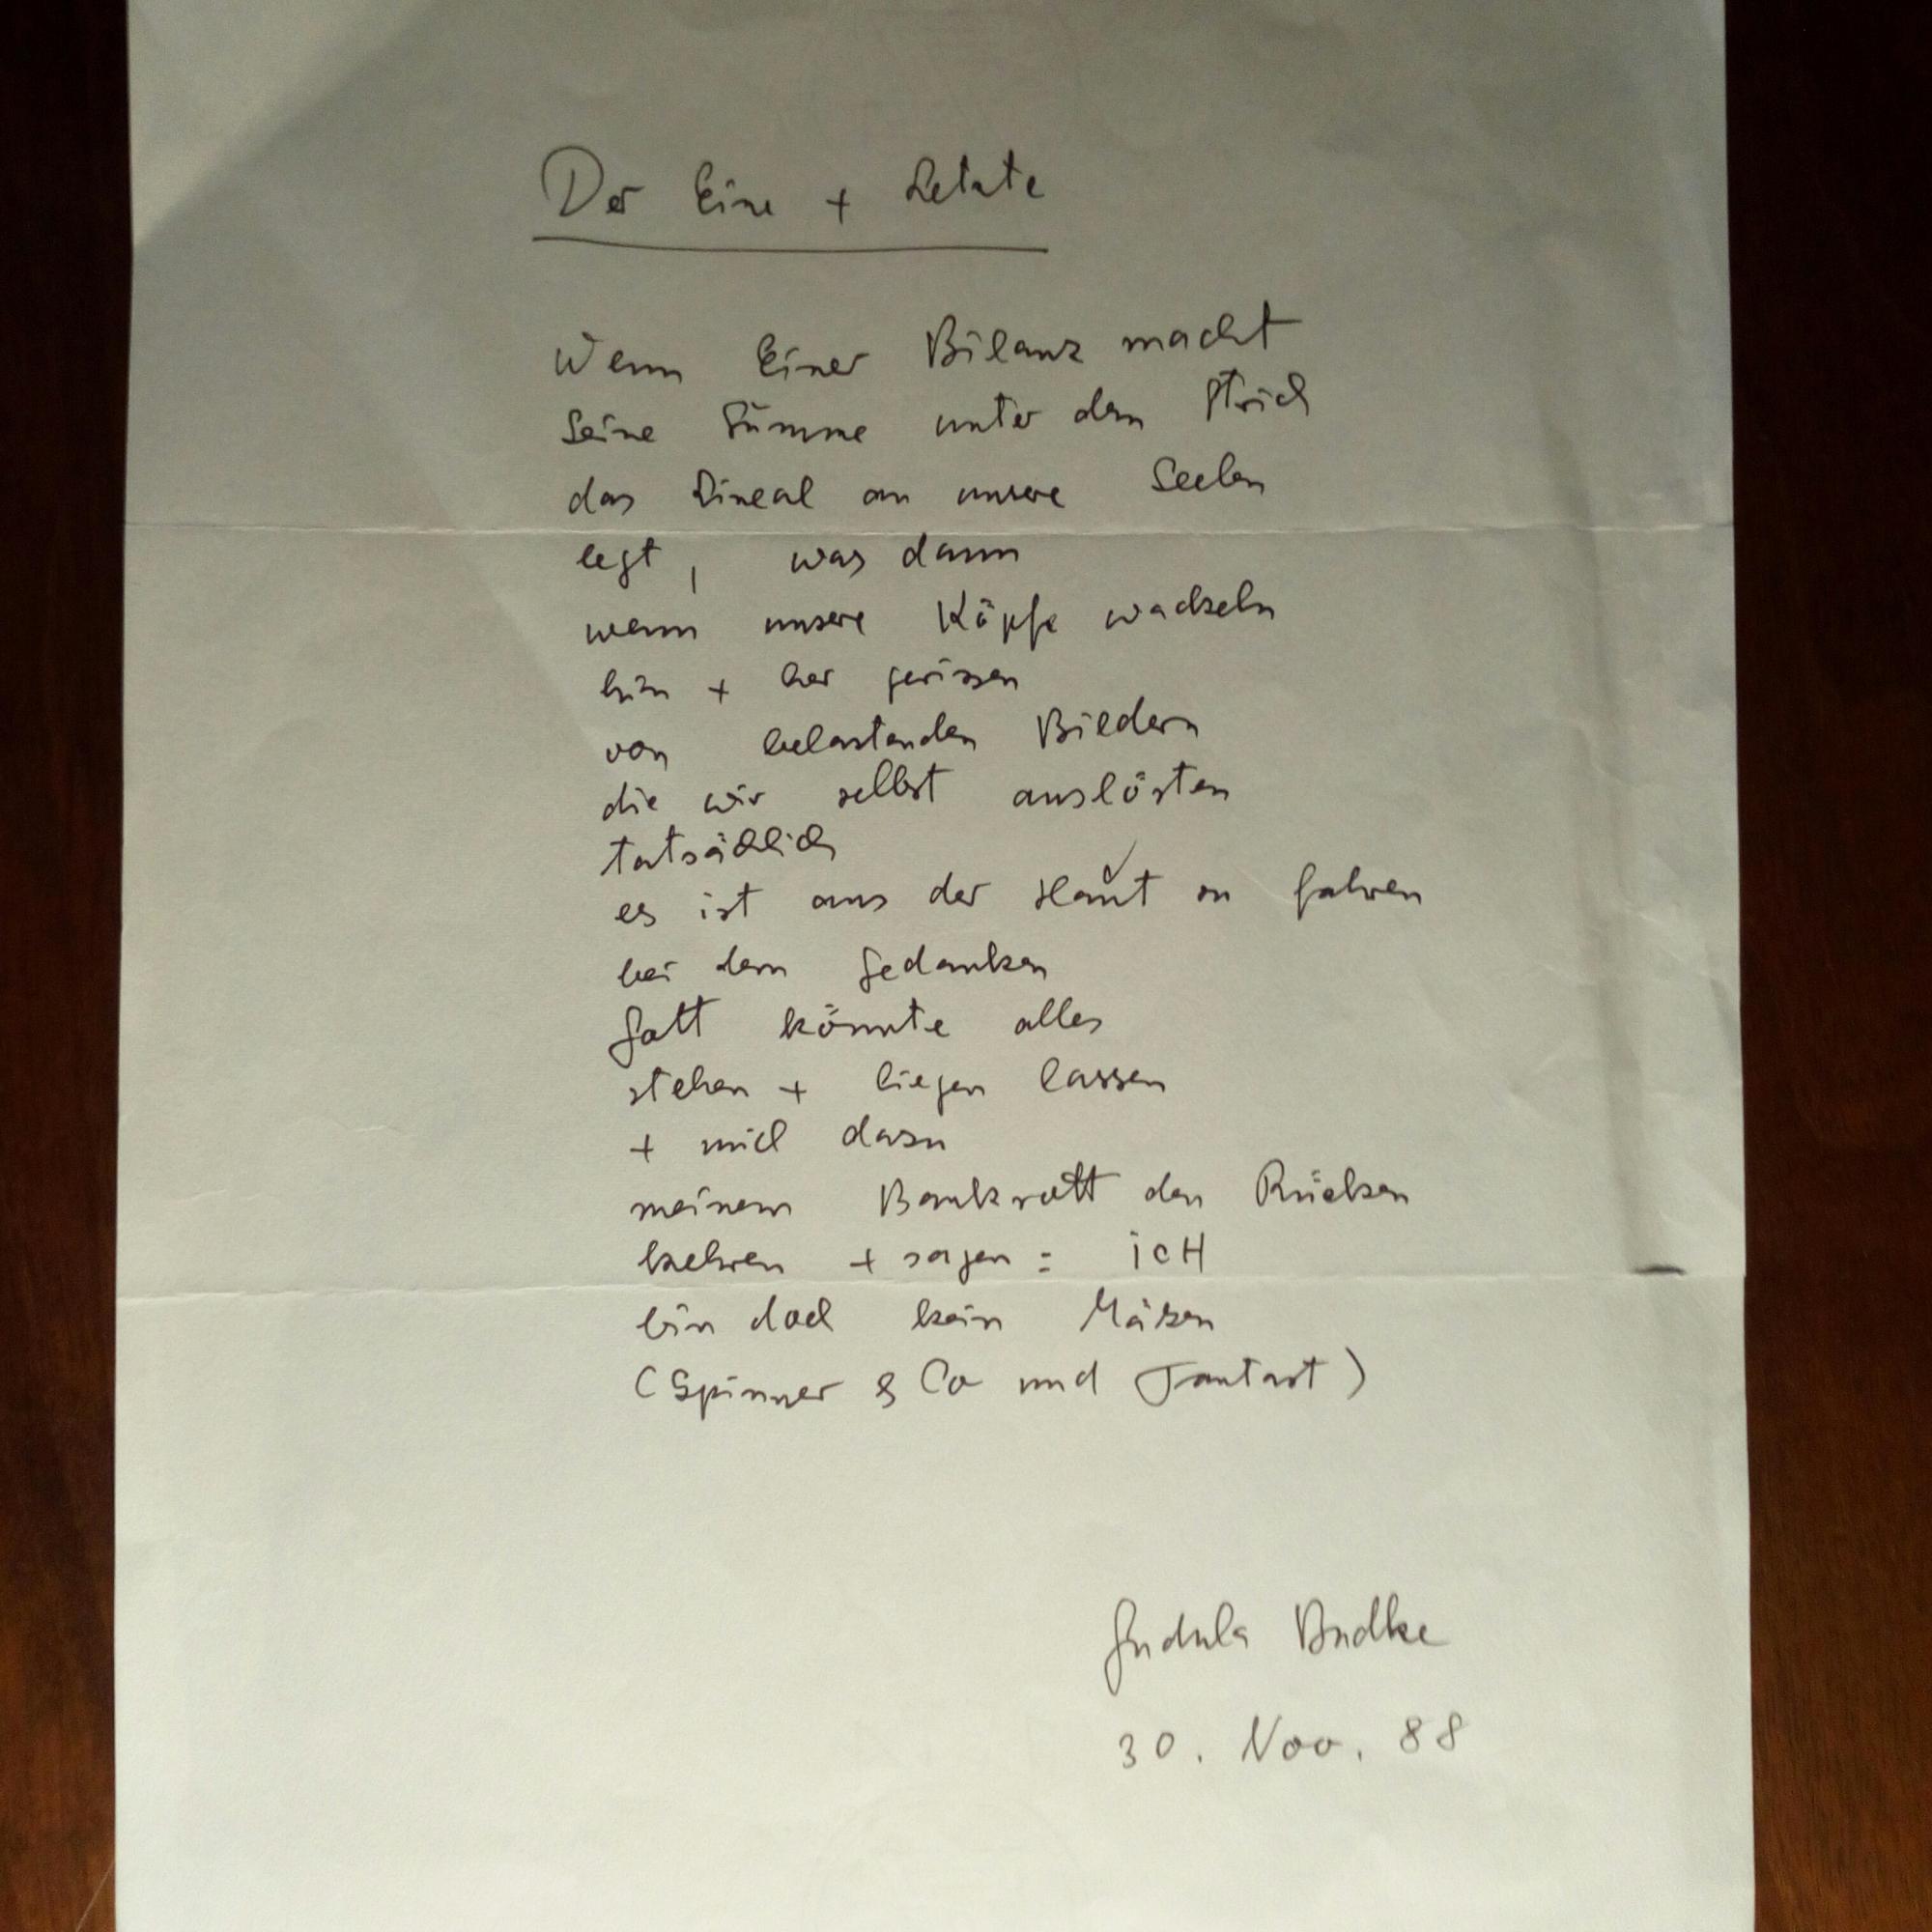 Der Eine + Letzte
Wenn Einer Bilanz macht
Seine Summe unter dem Strich
das Lineal an unsere Seelen
legt, was dann
wenn unsere Köpfe wackeln
hin + her gerissen
von belastenden Bildern
die wir selbst auslösten
tatsächlich
es ist aus der Haut zu fahren
bei dem Gedanken
Gott könnte alles
stehen + liegen lassen
+ mich dazu
meinem Bankrott den Rücken
kehren + sagen: icH
bin doch kein Mäzen
(Spinner & Co und Fantast)
Gudula Budke
30. Nov. 88